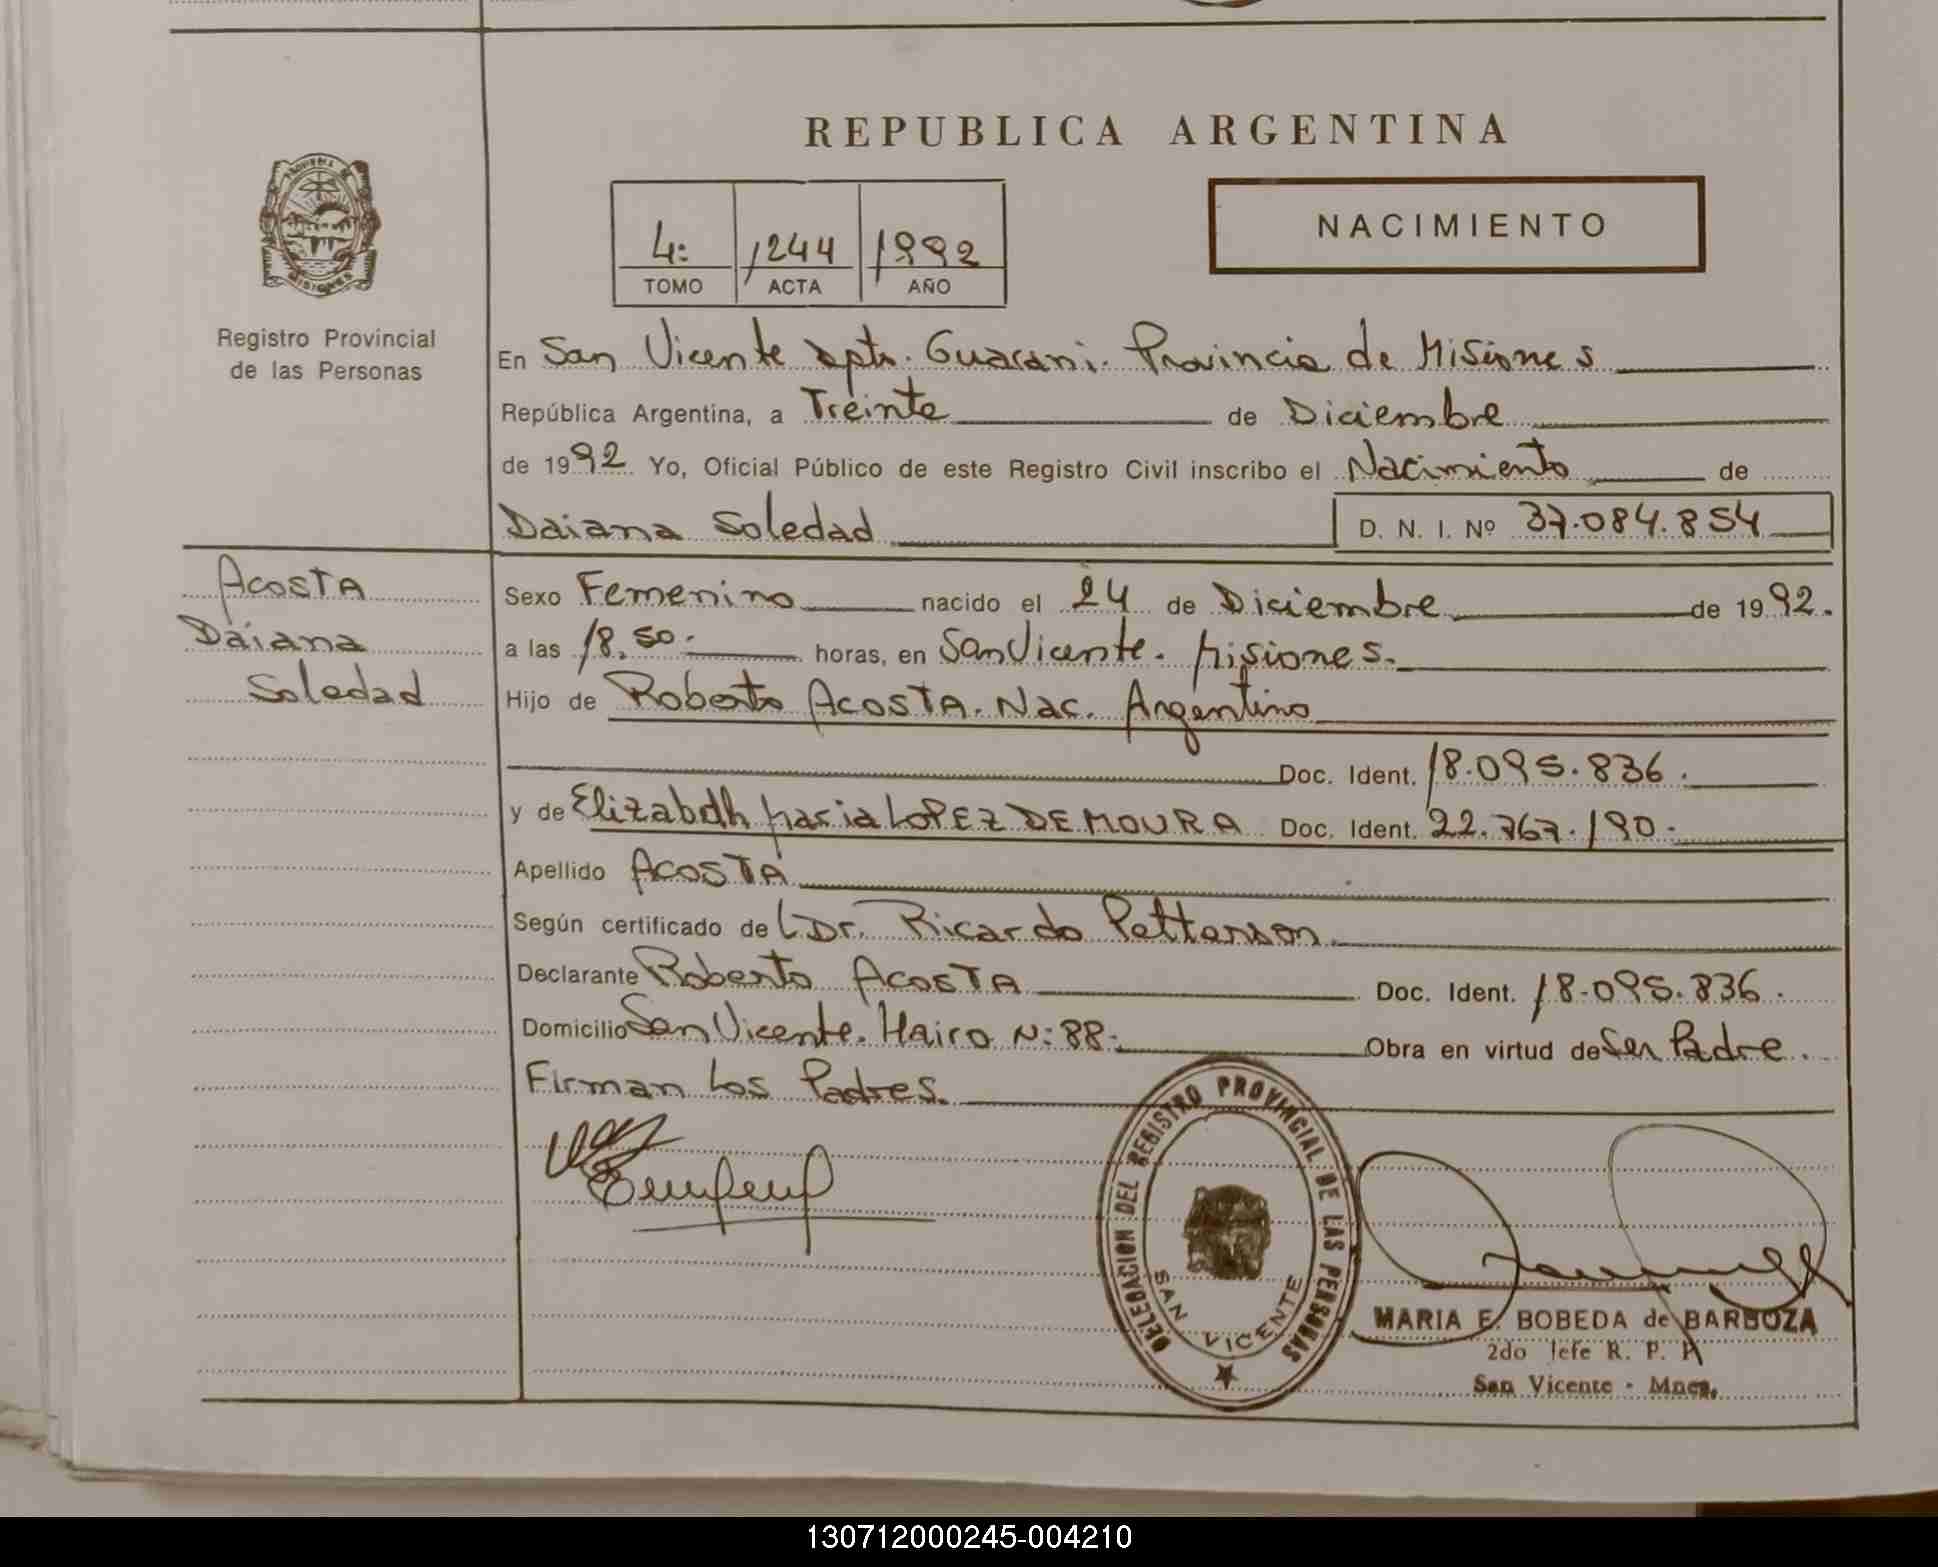 REPUBLICA ARGENTINA
NACIMIENTO
4: 1244 1992
TOMO ACTA AÑO
Registro Provincial
de las Personas
En San Vicente Dpto. Guarani. Provincia de Misiones
República Argentina, a Treinta de Diciembre
de 1992 Yo, Oficial Público de este Registro Civil inscribo el Nacimiento de
Daiana Soledad D. N. I. Nº 37.084.854
Acosta
Daiana
Soledad
Sexo Femenino nacido el 24 de Diciembre de 1992.
a las 18.50. horas, en San Vicente. Misiones.
Hijo de Roberto ACOSTA. Nac. Argentino
Doc. Ident. 18.095.836.
y de Elizabeth Maria LOPEZ DE MOURA Doc. Ident. 22.767.190.
Apellido ACOSTA
Según certificado de L Dr. Ricardo Petterson.
Declarante Roberto ACOSTA Doc. Ident. 18.095.836.
Domicilio San Vicente. Hairo N: 88. Obra en virtud de Ser Padre.
Firman Los Padres.
DELEGACION DEL REGISTRO PROVINCIAL DE LAS PERSONAS
SAN VICENTE
MARIA E. BOBEDA de BARBOZA
2do Jefe R. P. P.
San Vicente - Mnes.
130712000245-004210